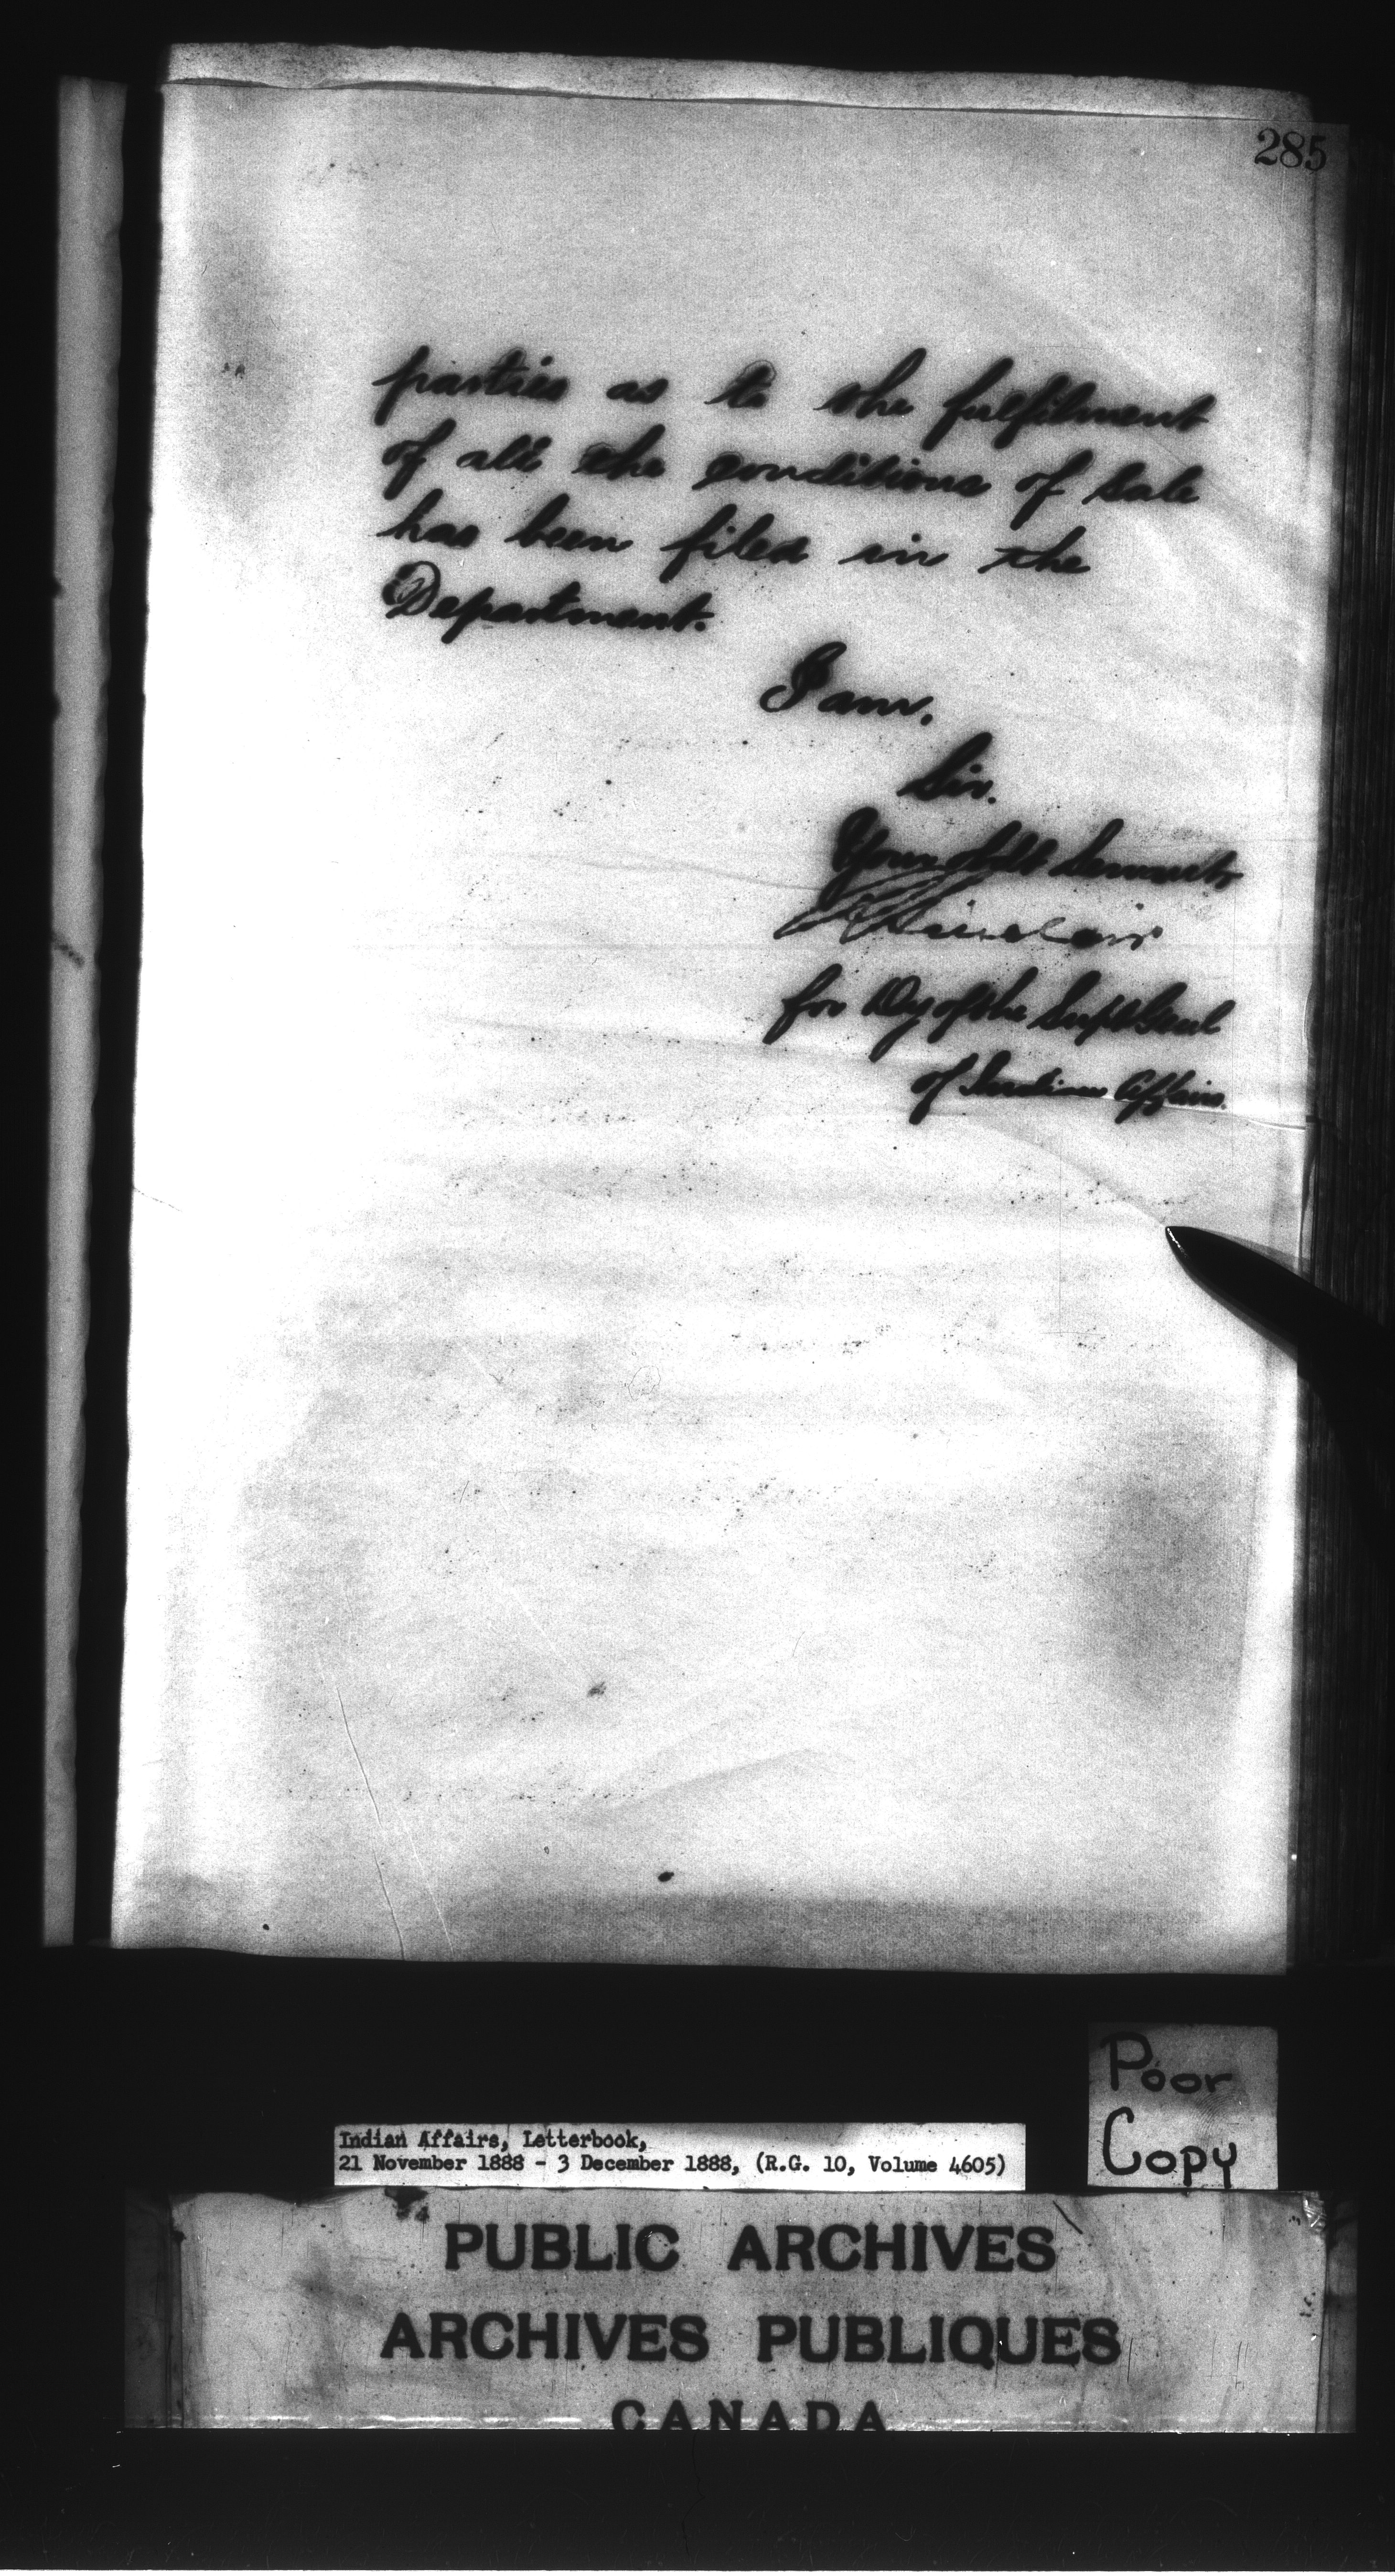 285
parties as to the fulfilment
of all the conditions of Sale
has been filed in the
Department.
I am,
Sir.
Your obdt Servant
Sinclair
for Dy of the Supt Genl
of Indian Affairs.
Poor
Copy
Indian Affairs, Letterbook,
21 November 1888 - 3 December 1888, (R.G. 10, Volume 4605)
PUBLIC ARCHIVES
ARCHIVES PUBLIQUES
CANADA